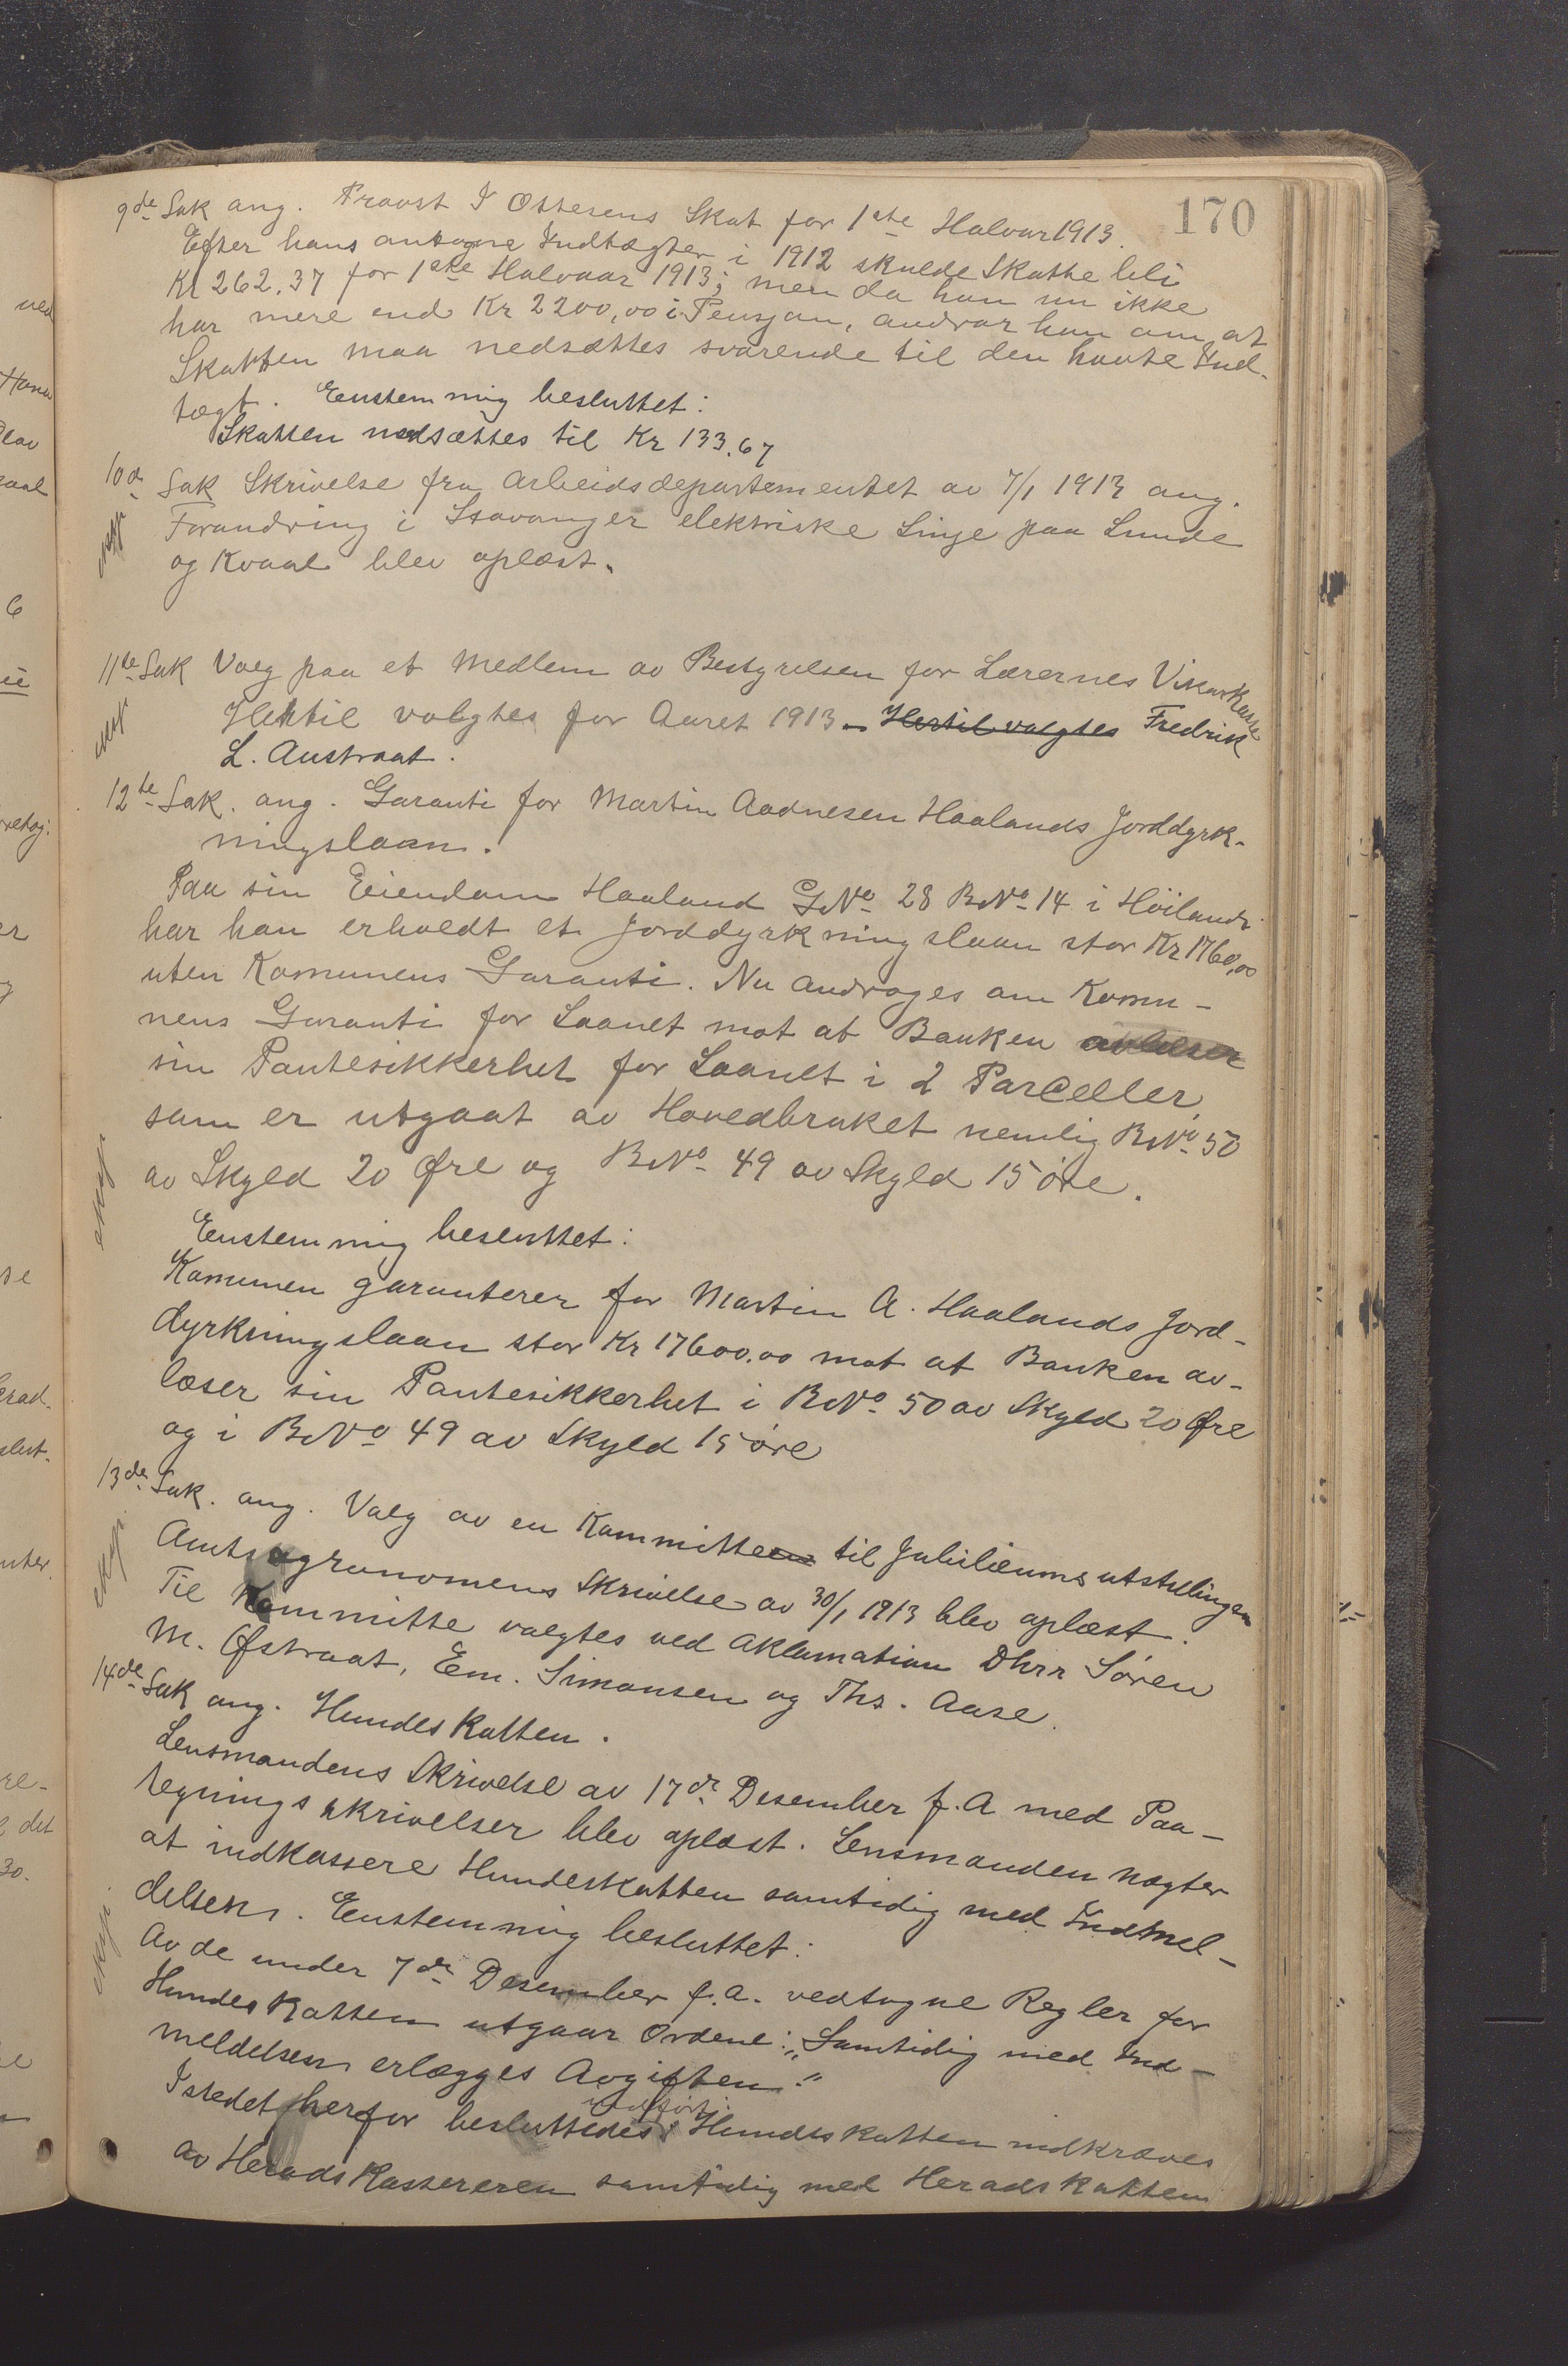 170
9de Sak ang. Provst I Ottesens Skat for 1ste Halvaar 1913.
Efter hans antagne Indtægter i 1912 skulde Skatte bli
Kr 262.37 for 1ste Halvaar 1913; men da han nu ikke
har mere end Kr 2200,00 i Pensjon, andrar han om at
Skatten maa nedsættes svarende til den havte Ind-
tægt. Enstemmig besluttet:
Skatten nedsættes til Kr 133.67
10de Sak Skrivelse fra Arbeidsdepartementet av 7/1 1913 ang.
Forandring i Stavanger elektriske Linje paa Lunde
og Kvaal blev oplæst.
11te Sak Valg paa et Medlem av Bestyrelsen for Lærernes Vikarkasse
Hertil valgtes for Aaret 1913 – Hertil valgtes Fredrik
L. Austraat.
12te Sak. ang. Garanti for Martin Aadnesen Haalands Jorddyrk-
ningslaan.
Paa sin Eiendom Haaland GNo 28 BNo 14 i Höiland
har han erholdt et Jorddyrkningslaan stor Kr 1760,00
uten Komunens Garanti. Nu androges om Komu-
nens Garanti for Laanet mot at Banken avløser
sin Pantesikkerhet for Laanet i 2 Parceller,
som er utgaat av Hovedbruket nemlig BNo 50
av Skyld 20 Øre og BNo 49 av Skyld 15 øre.
Enstemmig besluttet:
Komunen garanterer for Martin A. Haalands Jord-
dyrkningslaan stor Kr 17600.00 mot at Banken av-
løser sin Pantesikkerhet i BNo 50 av Skyld 20 Øre
og i BNo 49 av Skyld 15 øre
13de Sak. ang. Valg av en Kommitteen til Jubilæumsutstillingen
Amtsagronomens Skrivelse av 30/1 1913 blev oplæst.
Til Kommitte valgtes ved Aklamation Dhrr Sören
M. Østraat, Em. Simonsen og Ths. Aase.
14de Sak ang. Hundeskatten.
Lensmandens Skrivelse av 17de Desember f.A med Paa-
tegningsskrivelser blev oplæst. Lensmanden nægter
at indkassere Hundeskatten samtidig med Indmel-
delsen. Enstemmig besluttet:
Av de under 7de Desember f.a. vedtagne Regler for
Hundeskatten utgaar Ordene: „Samtidig med Ind-
meldelsen erlægges Avgiften."
Istedet herfor besluttedes Hundeskatten indkræves
av Heradskassereren samtidig med Heradskatten